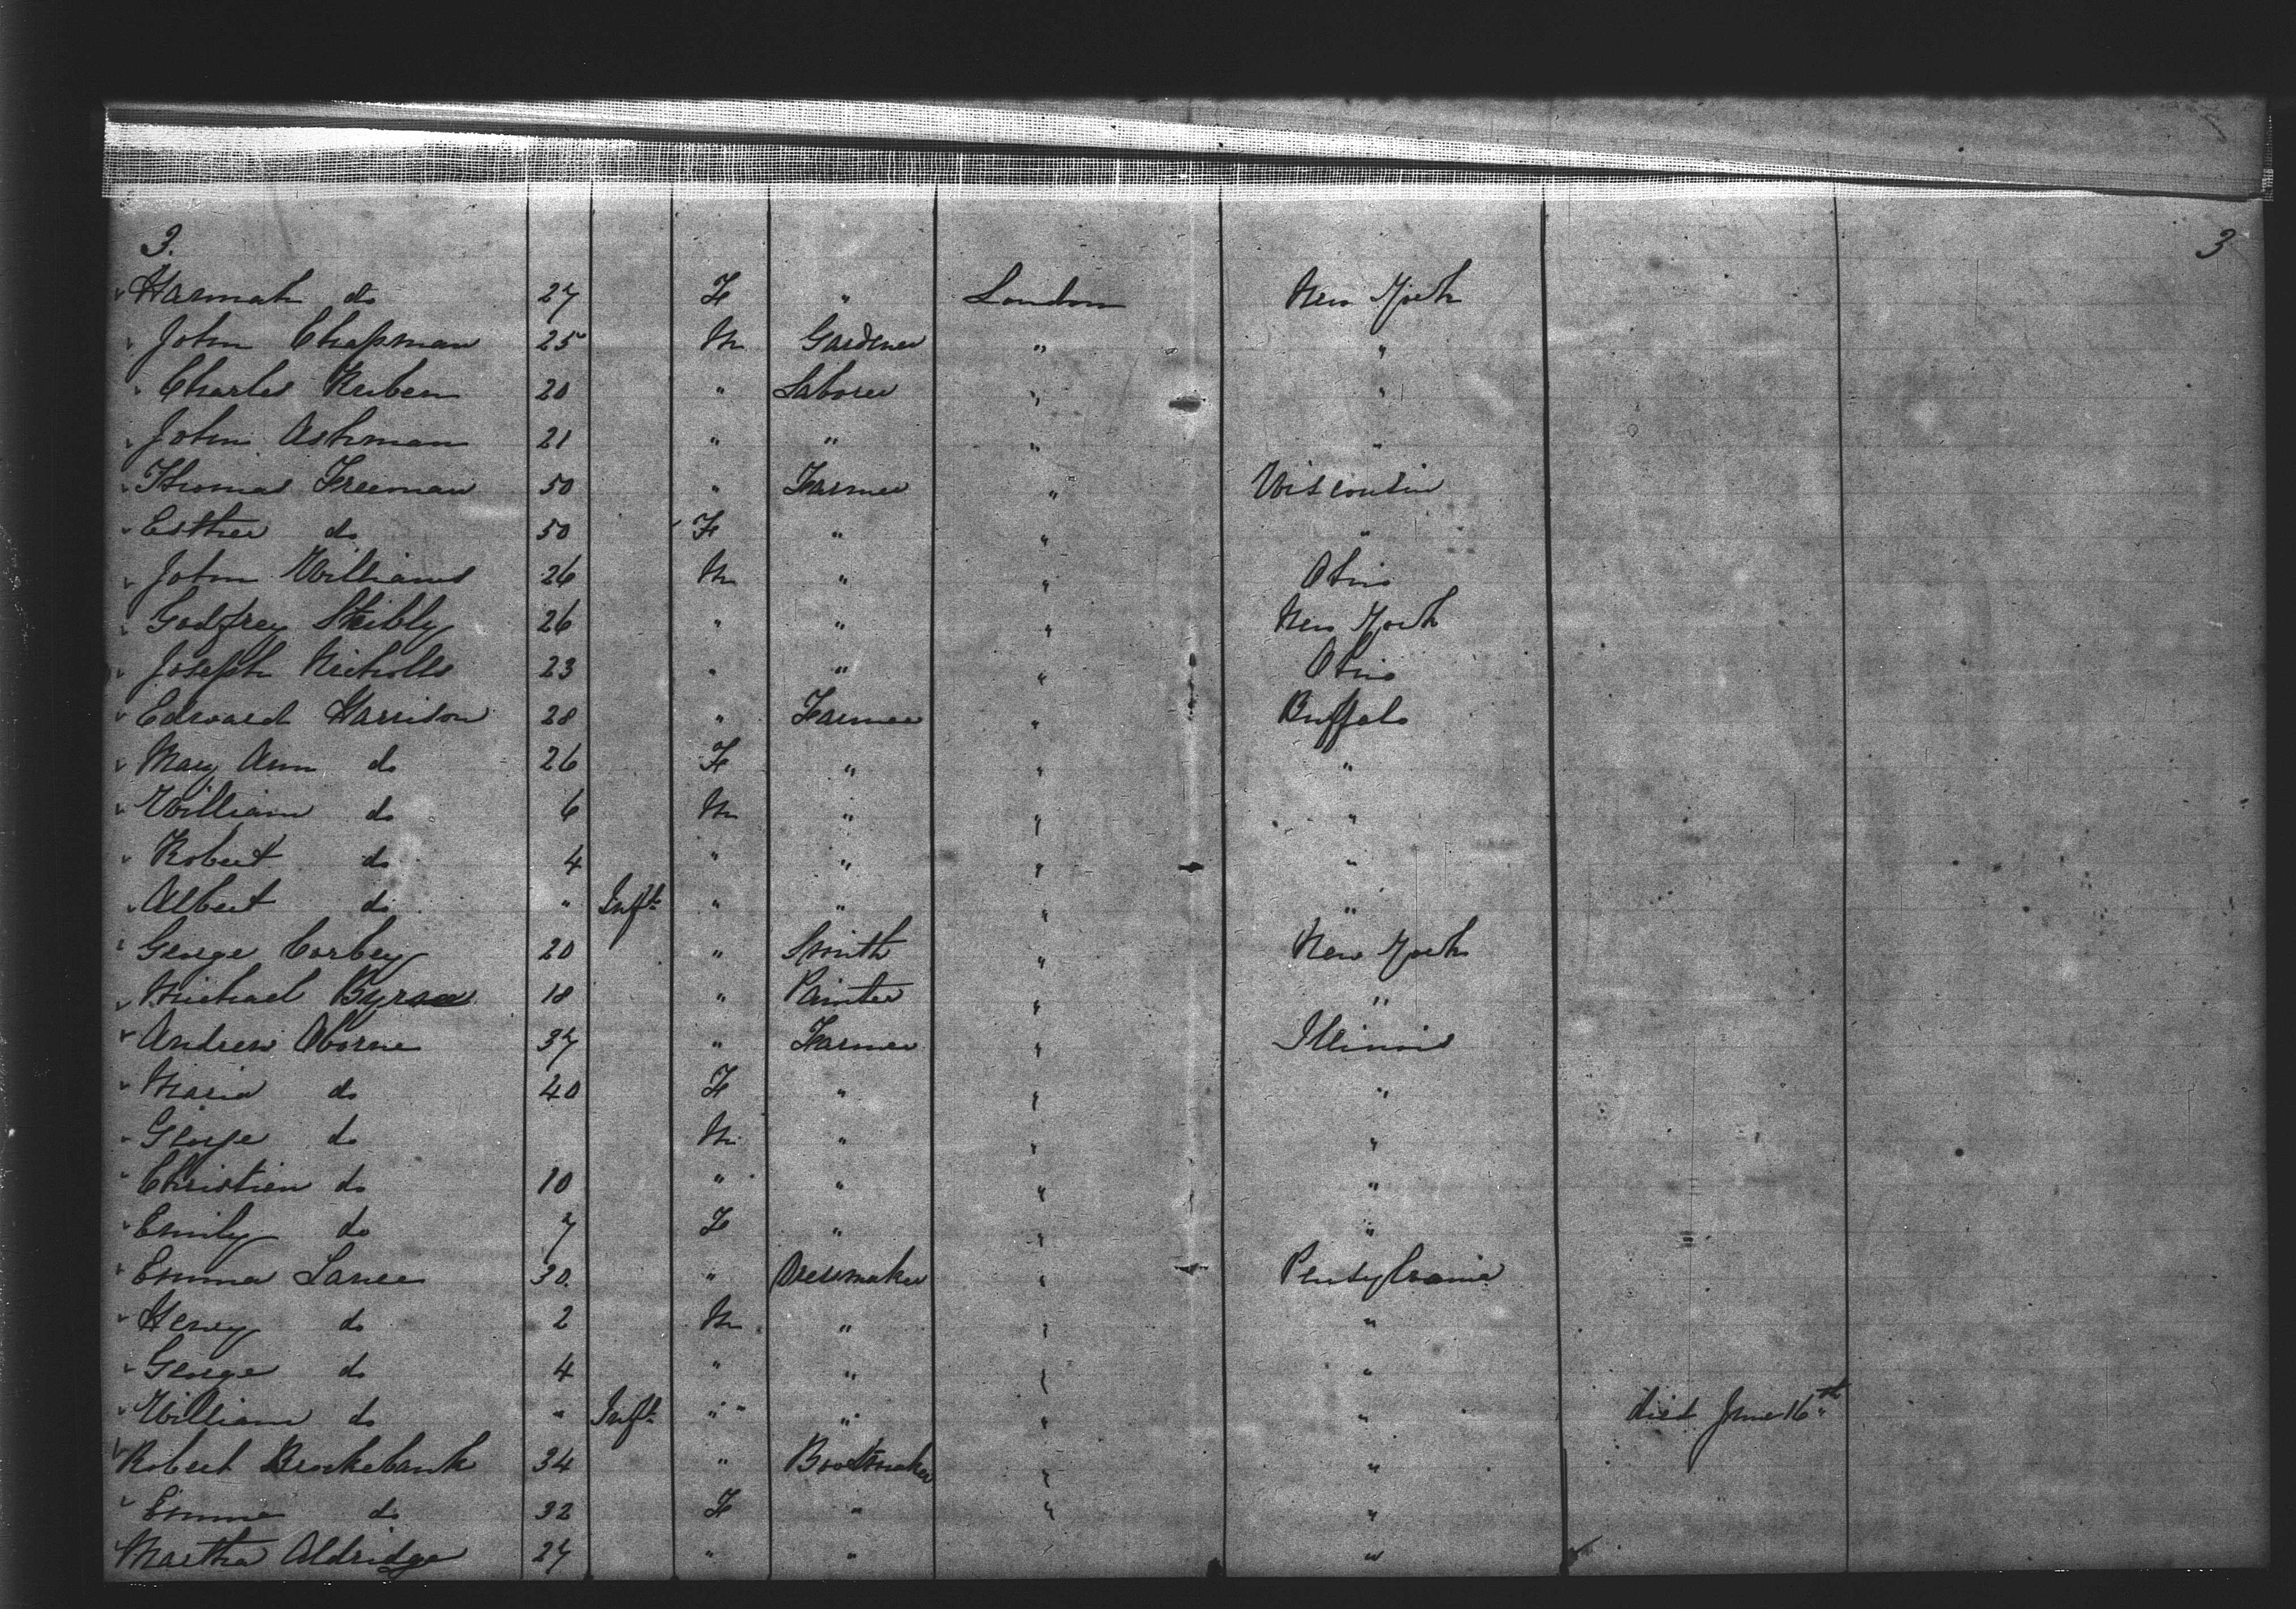 3. 3
Hannah do 27 F " London New York
John Chapman 25 M Gardener " "
Charles Reuben 20 " Laborer " "
John Ashman 21 " " " "
Thomas Freeman 50 " Farmer " Wisconsin
Esther do 50 F " " "
John Williams 26 M " " Ohio
Godfrey 26 " " " New York
Joseph Nicholls 23 " " " Ohio
Edward Harrison 28 " Farmer " Buffalo
Mary Ann do 26 F " " "
William do 6 M " " "
Robert do 4 " " " "
Albert do " Inft " " " "
George Corbey 20 " Smith " New York
Michael 18 " Painter " "
Andrew Oborne 37 " Farmer " Illinois
Maria do 40 F " " "
George do M " " "
Christien do 10 " " " "
Emily do 7 F " " "
Emma Lance 30. " Dressmaker " Pensylvania
Henry do 2 M " " "
George do 4 " " " "
William do " Inft " " " " died June 16th
Robert Brockebank 34 " Bootmaker " "
Emma do 32 F " " "
Martha Aldridge 27 " " "